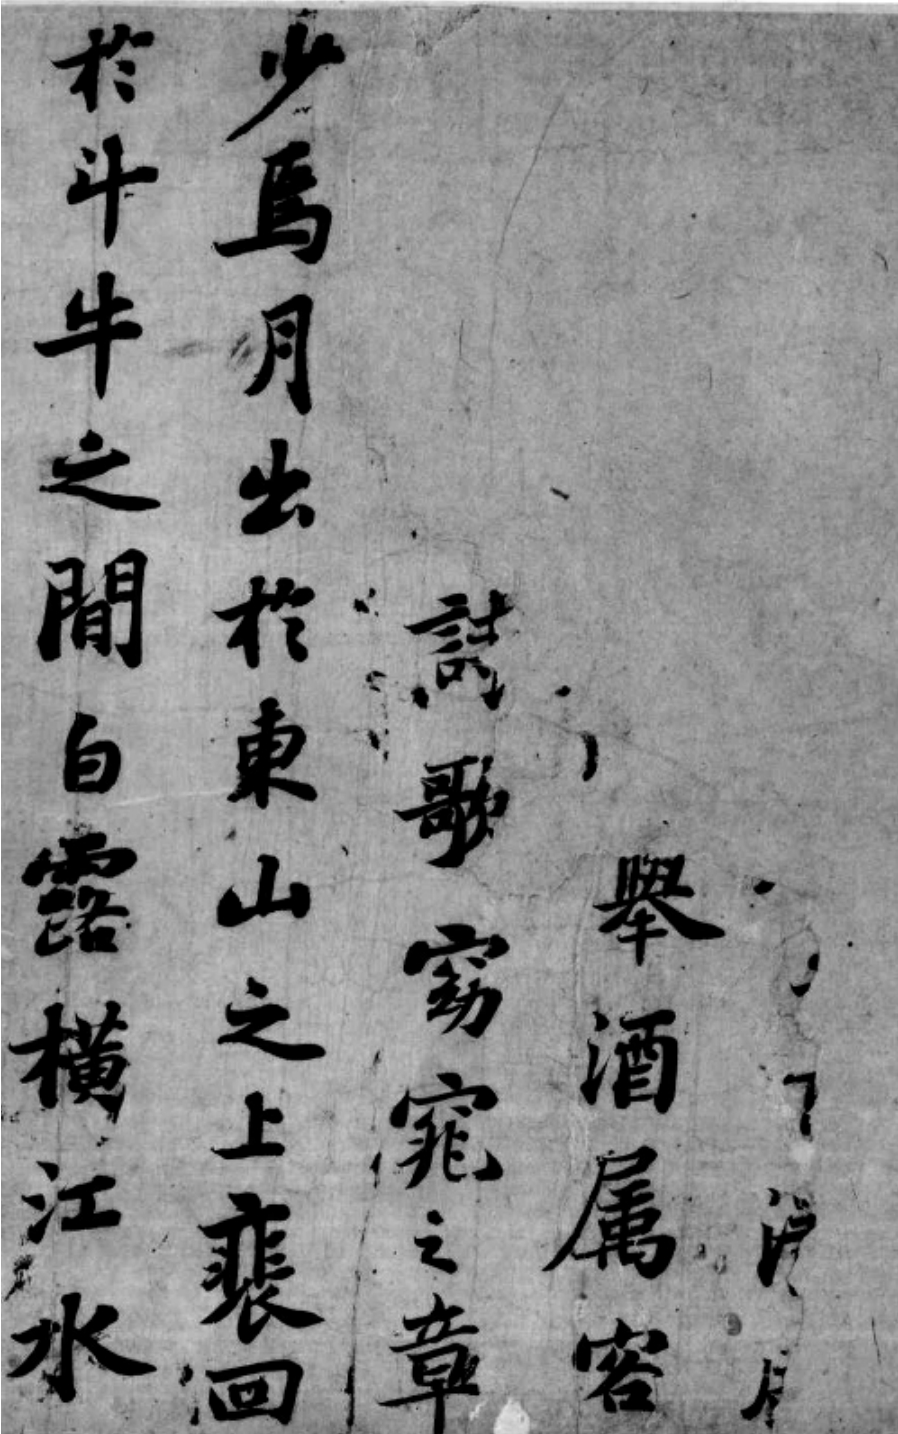 舉酒属客
歌窈窕之章
少焉月出於東山之上裴回
於斗牛之間白露横江水